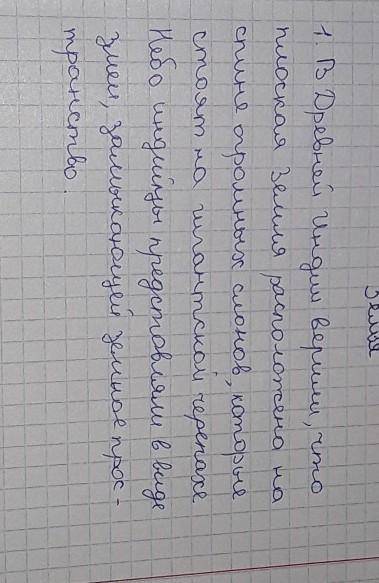 Земля
1. В Древней Индии верили, что
плоская Земля расположена на
спине огромных слонов, которые
стоят на гигантской черепахе
Небо индийцы представляли в виде
змеи, замыкающей земное прос-
транство.